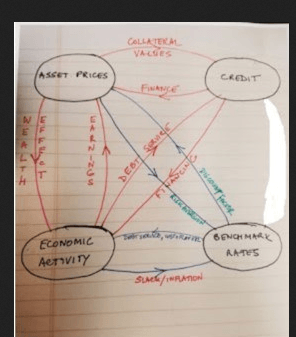 COLLATERAL
VALUES
ASSET PRICES
CREDIT
FINANCE
WEALTH
EFFECT
EARNINGS
DEBT SERVICE
FINANCING
DISCOUNT FACTOR
ECONOMIC
ACTIVITY
BENCHMARK
RATES
SLACK/INFLATION